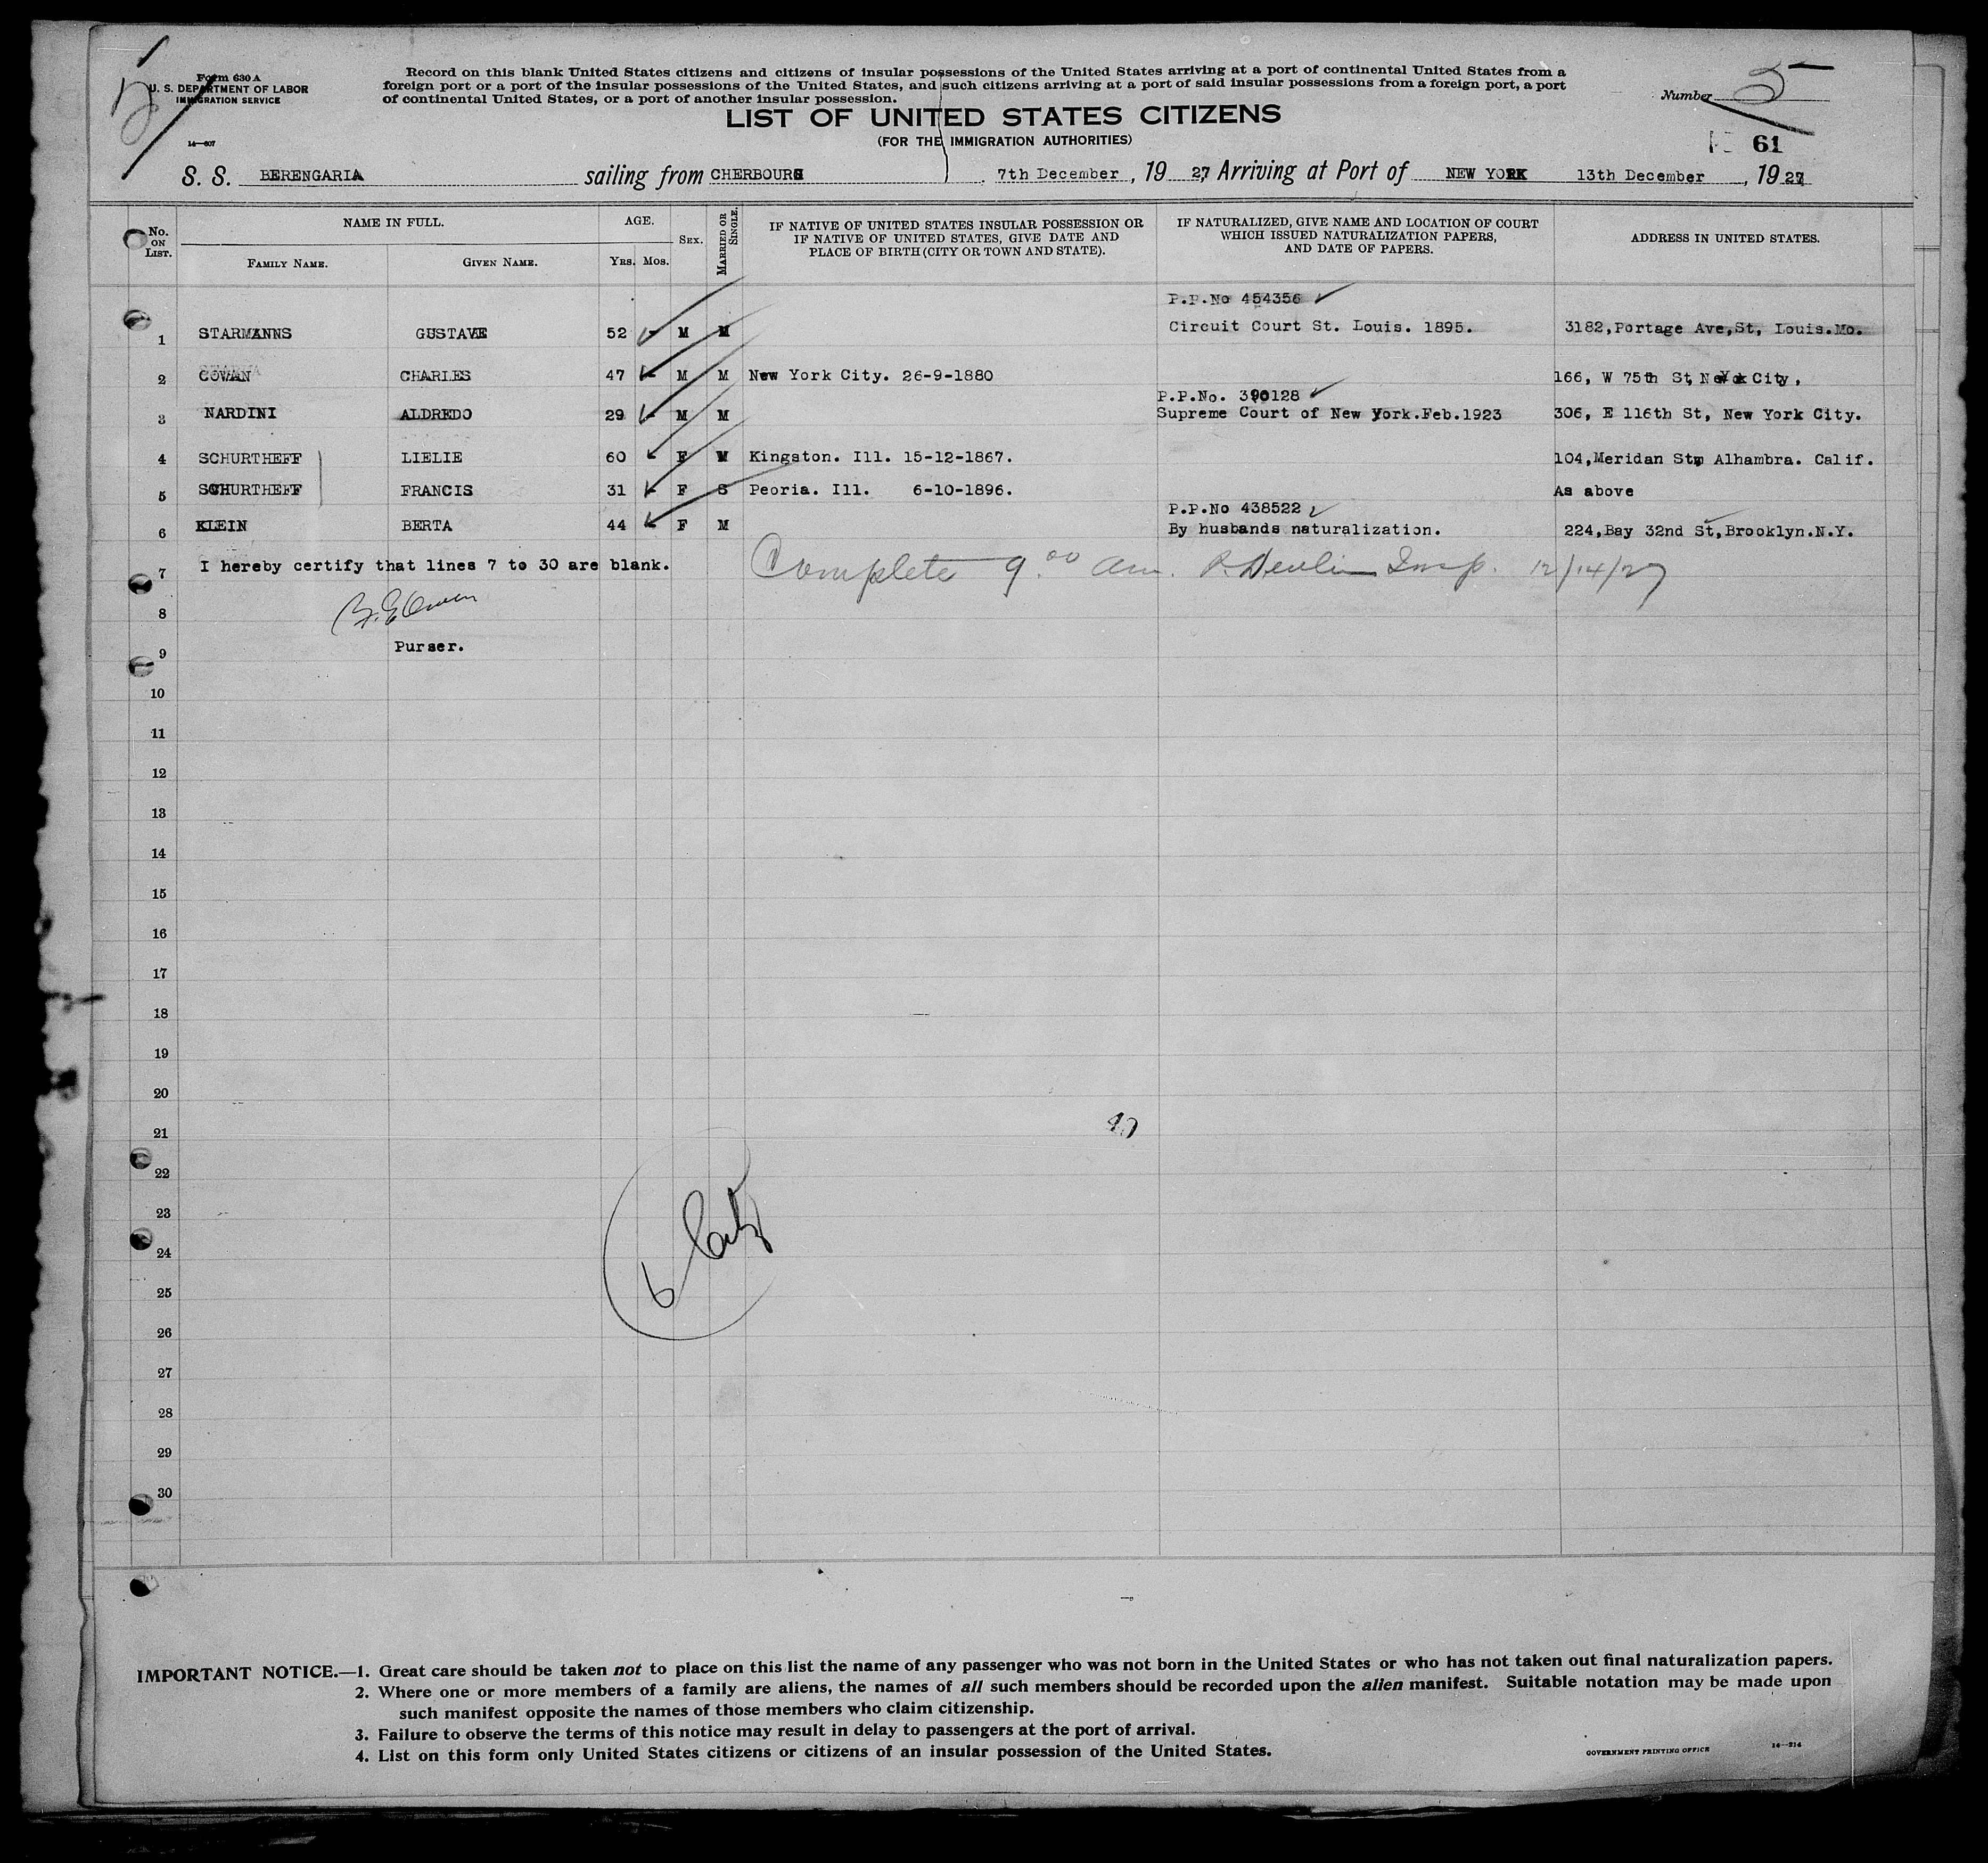 Form 630 A
U. S. DEPARTMENT OF LABOR
IMMIGRATION SERVICE
14—607
Record on this blank United States citizens and citizens of insular possessions of the United States arriving at a port of continental United States from a
foreign port or a port of the insular possessions of the United States, and such citizens arriving at a port of said insular possessions from a foreign port, a port
of continental United States, or a port of another insular possession.
Number 5
LIST OF UNITED STATES CITIZENS
(FOR THE IMMIGRATION AUTHORITIES)
61
S. S. BERENGARIA sailing from CHERBOURG 7th December, 19 27, Arriving at Port of NEW YORK 13th December, 19 27
No. ON LIST. NAME IN FULL. AGE. SEX. MARRIED OR SINGLE. IF NATIVE OF UNITED STATES INSULAR POSSESSION OR IF NATIVE OF UNITED STATES, GIVE DATE AND PLACE OF BIRTH (CITY OR TOWN AND STATE). IF NATURALIZED, GIVE NAME AND LOCATION OF COURT WHICH ISSUED NATURALIZATION PAPERS, AND DATE OF PAPERS. ADDRESS IN UNITED STATES.
FAMILY NAME. GIVEN NAME. YRS. MOS.
P.P.No 454356
1 STARMANNS GUSTAVE 52 - M M Circuit Court St. Louis. 1895. 3182,Portage Ave,St, Louis.Mo.
2 COWAN CHARLES 47 - M M New York City. 26-9-1880 166, W 75th St, New York City,
P.P.No. 390128
3 NARDINI ALDREDO 29 - M M Supreme Court of New York.Feb.1923 306, E 116th St, New York City.
4 SCHURTHEFF LIELIE 60 - F M Kingston. Ill. 15-12-1867. 104,Meridan St, Alhambra. Calif.
5 SCHURTHEFF FRANCIS 31 - F S Peoria. Ill. 6-10-1896. As above
P.P.No 438522
6 KLEIN BERTA 44 - F M By husbands naturalization. 224,Bay 32nd St,Brooklyn.N.Y.
7 I hereby certify that lines 7 to 30 are blank. Complete 9.00 am. P. Devlin Insp. 12/14/27
8
Purser.
9
10
11
12
13
14
15
16
17
18
19
20
21
22
23
24
25
26
27
28
29
30
IMPORTANT NOTICE.—1. Great care should be taken not to place on this list the name of any passenger who was not born in the United States or who has not taken out final naturalization papers.
2. Where one or more members of a family are aliens, the names of all such members should be recorded upon the alien manifest. Suitable notation may be made upon
such manifest opposite the names of those members who claim citizenship.
3. Failure to observe the terms of this notice may result in delay to passengers at the port of arrival.
4. List on this form only United States citizens or citizens of an insular possession of the United States.
GOVERNMENT PRINTING OFFICE 14—214